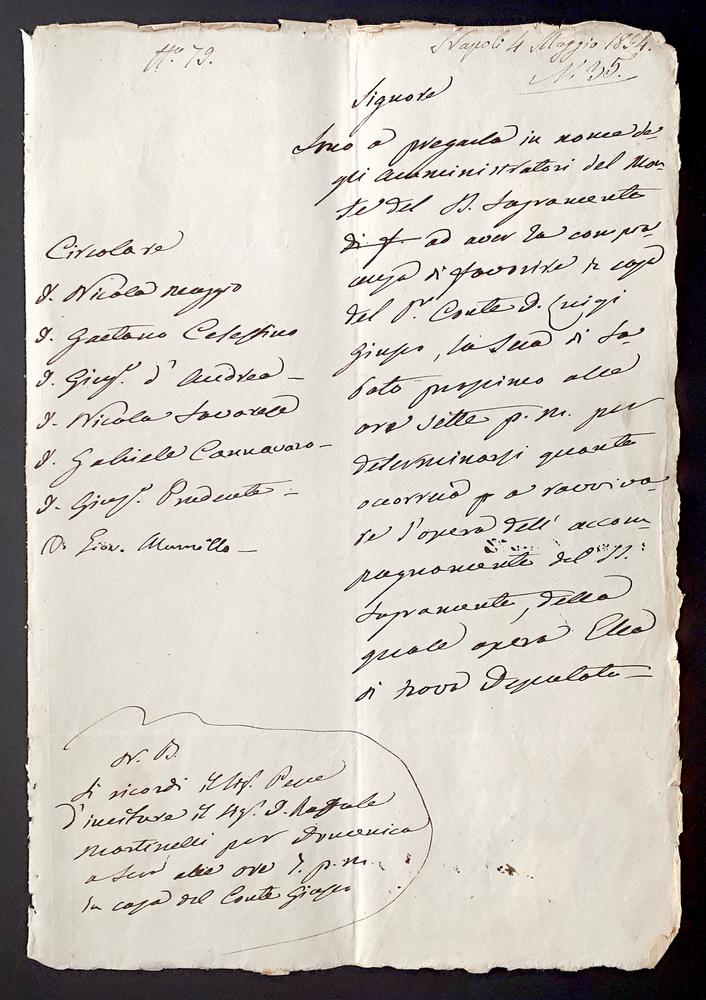 Napoli 4 Maggio 1854.
N.° 35.
Signore
Sono a pregarla in nome de-
gli Amministratori del Mon-
te del SS. Sagramento
di f ad aver la compia-
cenza di favorire in casa
del Sr. Conte D. Luigi
Giusso, la sera di Sa-
bato prossimo alle
ore sette p. m. per
determinarsi quanto
occorrerà p a ravviva-
re l'opera dell' accom-
pagnamento del SS.
Sagramento, della
quale opera Ella
si trova Deputato —
Circolare
D. Nicola Maggio
D. Gaetano Celestino
D. Gius. d' Andrea —
D. Nicola Savarese
D. Gabriele Cannavaro —
D. Gius. Prudente —
D. Giov. Murrillo —
N. B.
Si ricordi il Sig. Pepe
d'invitare il Sig. D. Raffaele
Martinelli per Domenica
a sera alle ore 7. p. m.
in casa del Conte Giusso